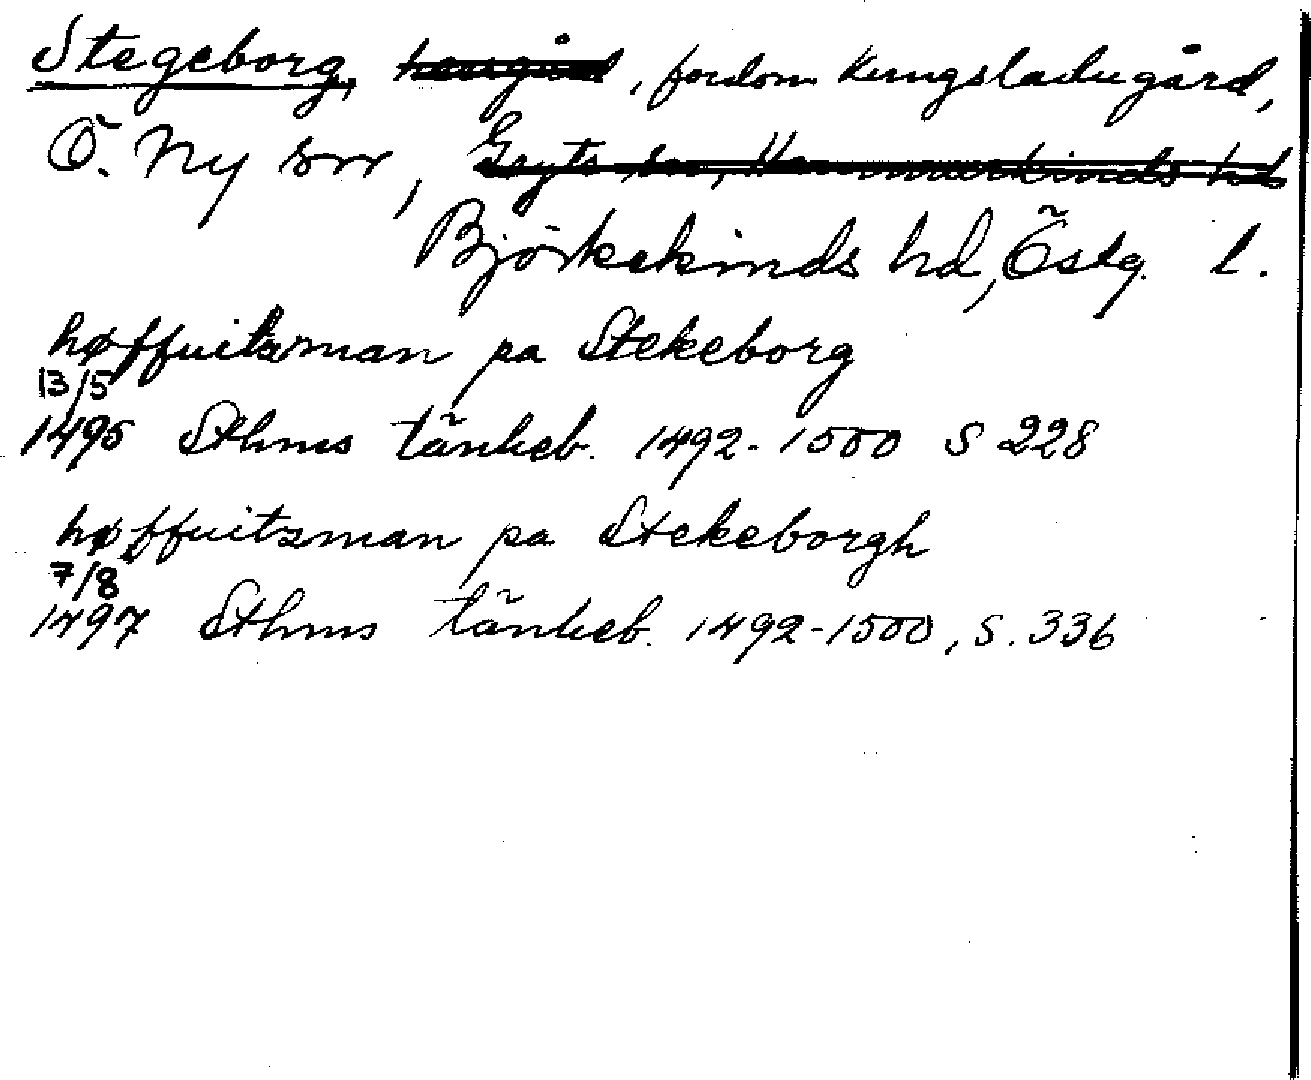 Stegeborg, herrgård, fordom kungsladugård,
Ö. Ny sn, Gryts sn, Hammarkinds hd
Björkekinds hd, Östg. l.
høffuitzman pa Stekeborg
13/5
1495 Sthms tänkeb. 1492-1500 S 228
høffuitzman pa Stekeborgh
7/8
1497 Sthms tänkeb. 1492-1500, S. 336